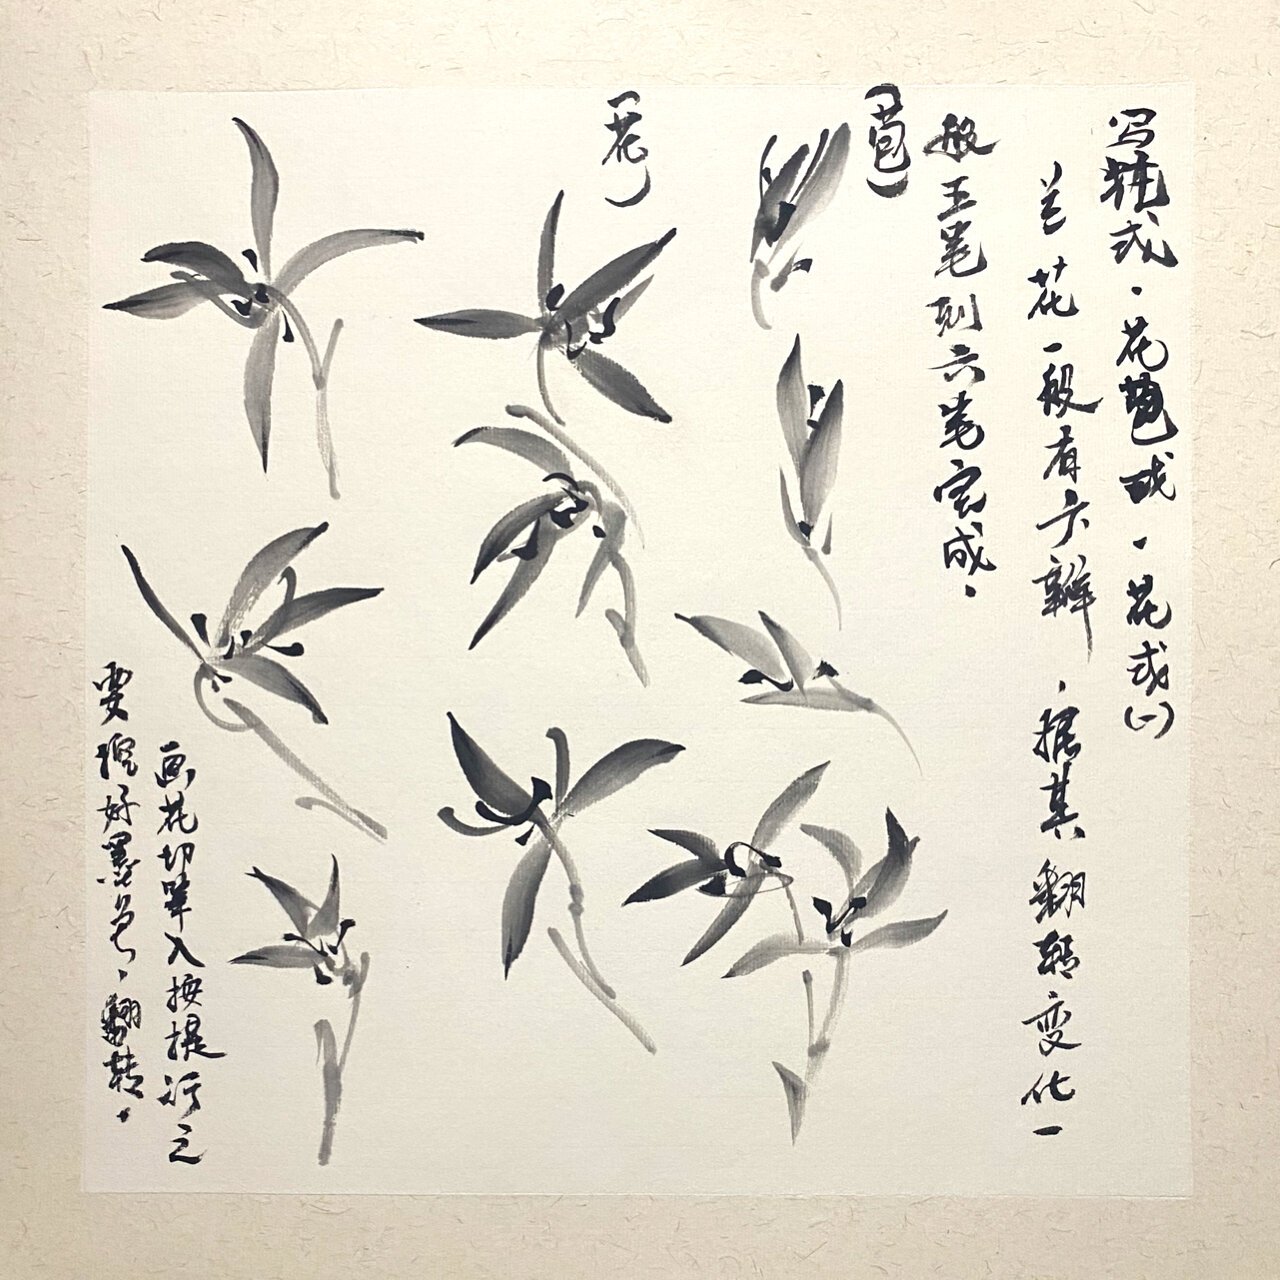 写式·花苞式·花式(一)
兰花一般有六瓣，据其翻转变化一
般五笔到六笔完成。
(苞)
(花)
画花切笔入按提行之
要控好墨色，翻转。